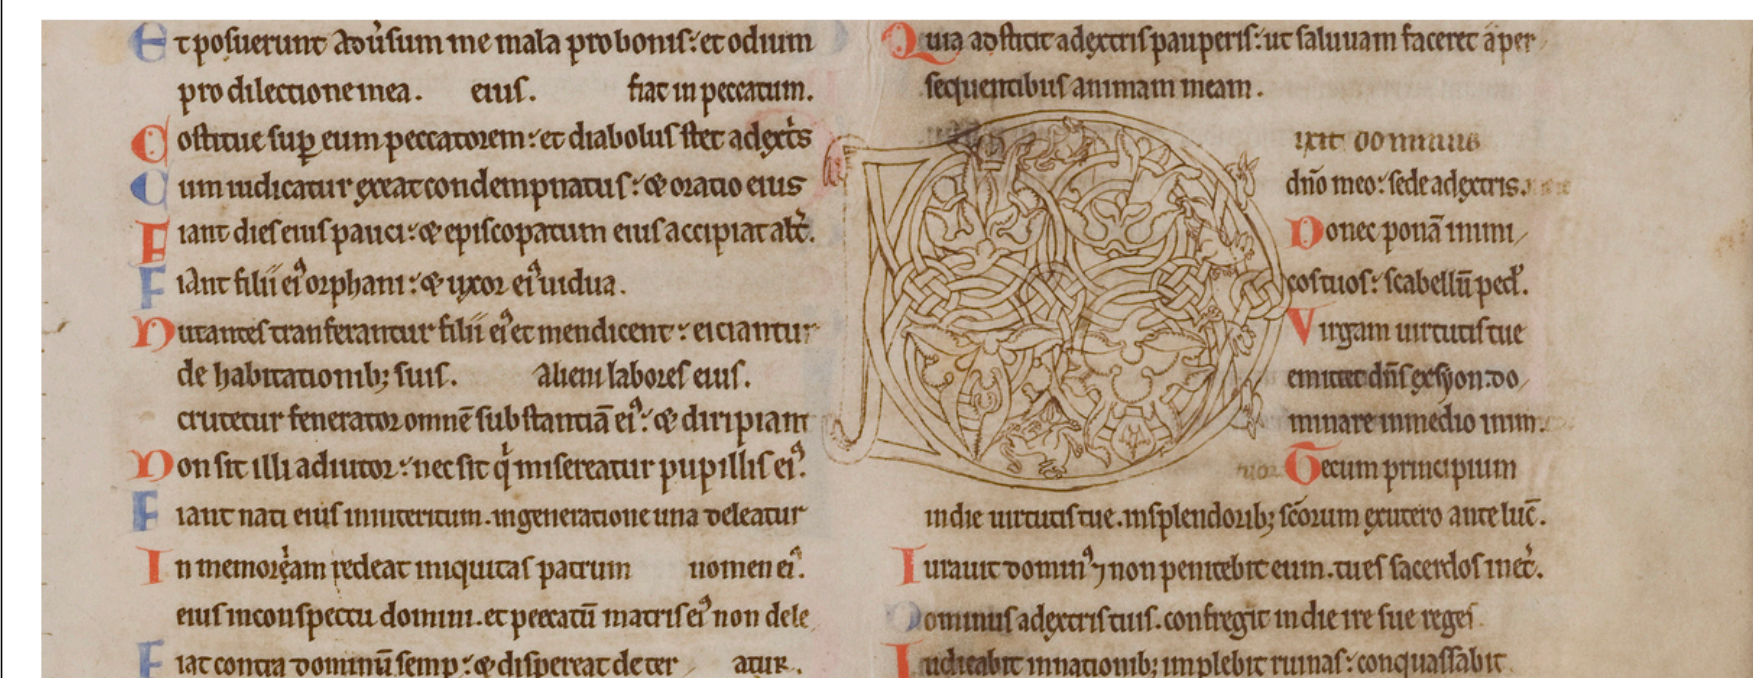 Et posuerunt adu'sum me mala pro bonis: et odium
pro dilectione mea. eius. fiat in peccatum.
Costitue sup eum peccatorem: et diabolus stet a dext's
Cum iudicatur exeat condempnatus: & oratio eius
Fiant dies eius pauci: & episcopatum eius accipiat alt'.
Fiant filii ei' orphani: & uxor ei' uidua.
Nutantes tranferantur filii ei' et mendicent: eiciantur
de habitationib; suis. alieni labores eius.
crutetur fenerator omnē substantiā ei': & diripiant
Non sit illi adiutor: nec sit q' misereatur pupillis ei'.
Fiant nati eius in interitum. in generatione una deleatur
In memoream redeat iniquitas patrum nomen ei'.
eius in conspectu domini. et peccatū matris ei' non dele
Fiat contra dominū semp: & dispereat de ter atur.
Quia adstitit a dextris pauperis: ut saluuam faceret a per
sequentibus animam meam.
Dixit dominus
dn̄o meo: sede a dextris.
Donec ponā inimi
cos tuos: scabellū ped'.
Virgam uirtutis tue
emittet dn̄s ex syon: do
minare in medio inim.
Tecum principium
in die uirtutis tue. in splendorib; sc̄orum ex utero ante lucē.
Iurauit domin' ⁊ non penitebit eum. tu es sacerdos in et'.
Dominus a dextris tuis. confregit in die ire sue reges
Iudicabit in nationib; implebit ruinas: conquassabit